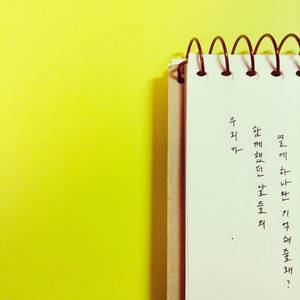 우리가
함께했던 날들의
열에 하나만 기억해줄래?